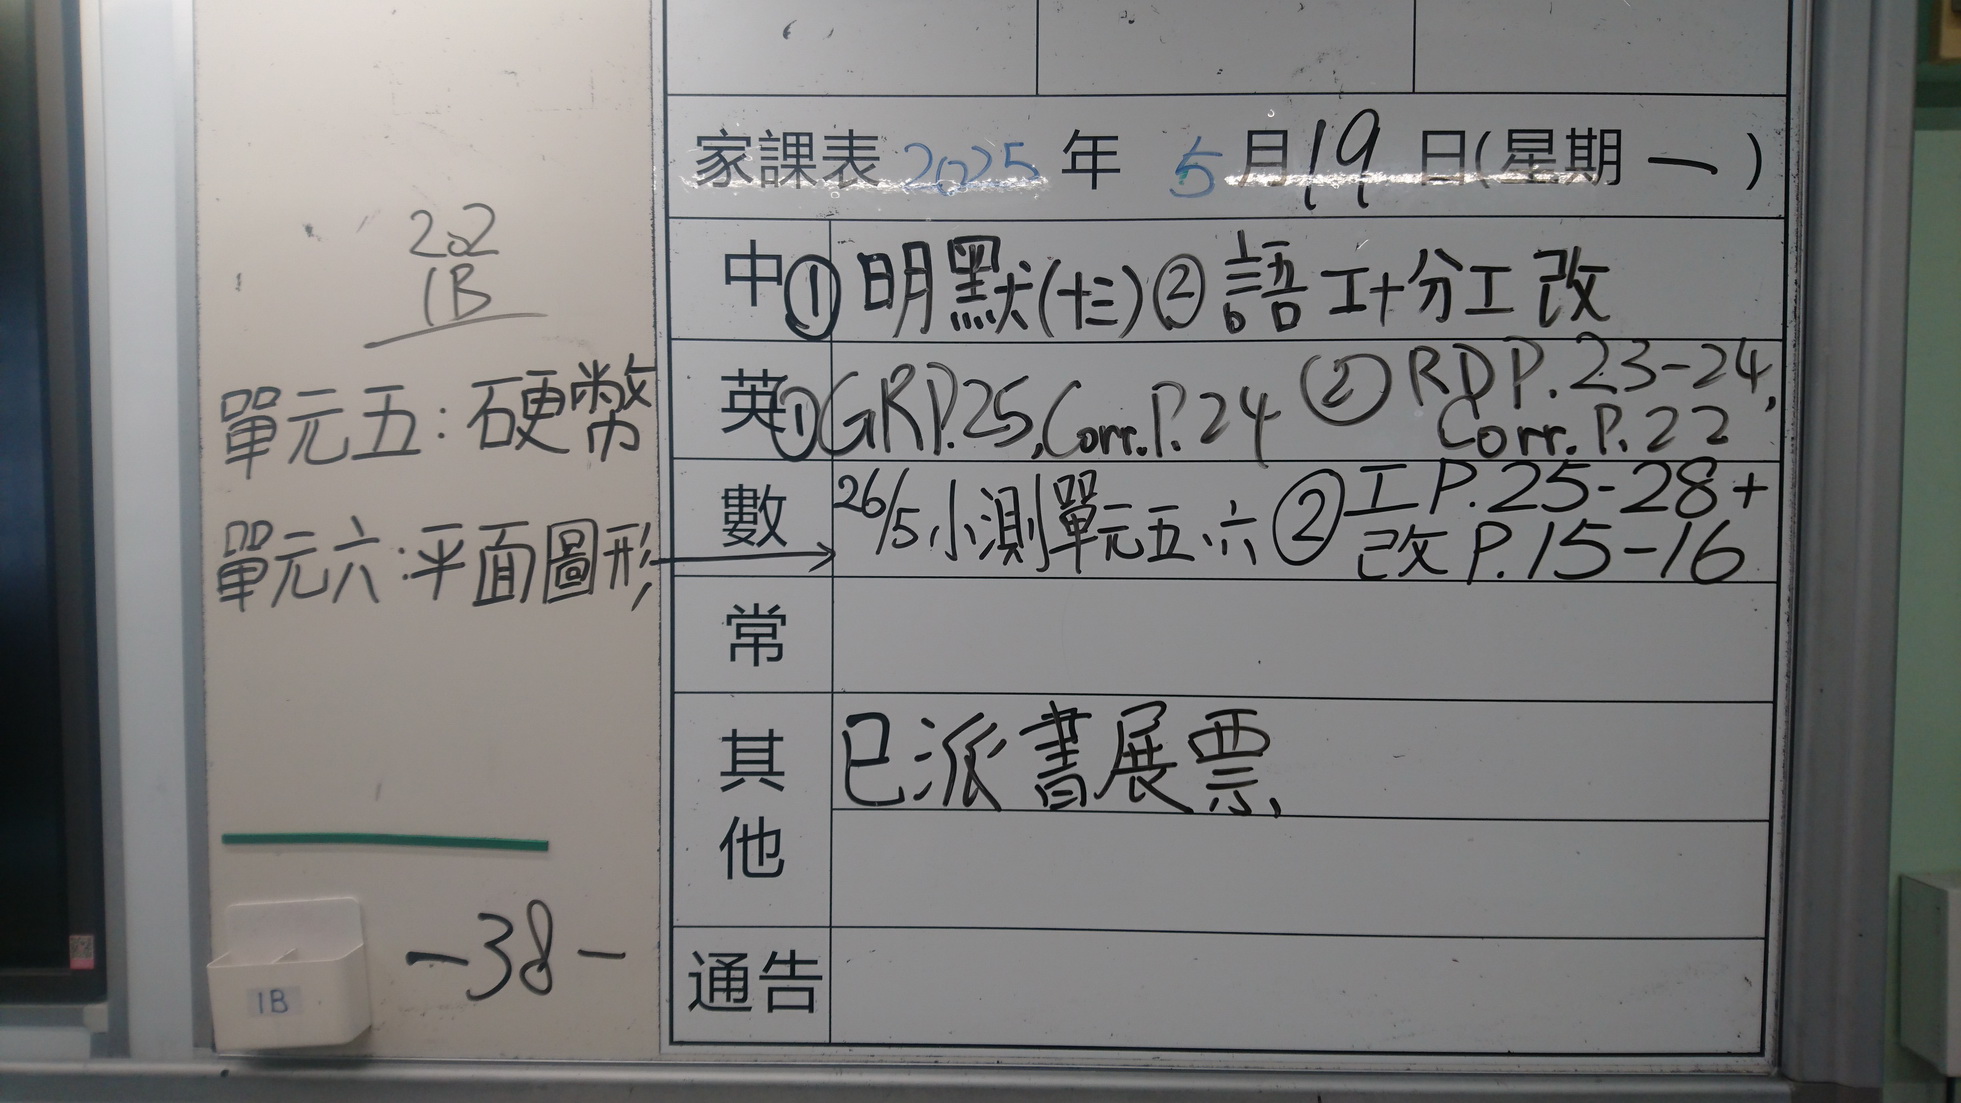 202
1B
單元五:硬幣
單元六:平面圖形→
-38-
1B
家課表 2025 年 5 月 19 日(星期 一)
中 ① 明默(十三) ② 語工+分工改
英 ① GRP.25, Corr.P.24 ② RDP.23-24,
Corr.P.22
數 26/5小測單元五、六 ② 工P.25-28+
改P.15-16
常
其他 已派書展票
通告